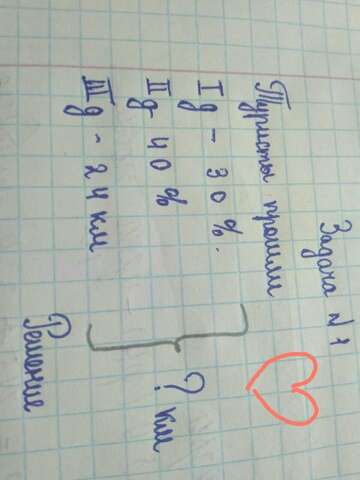 Задача № 1
Туристы прошли
I д - 30%.
II д 40%
III д - 24 км
? км
Решение